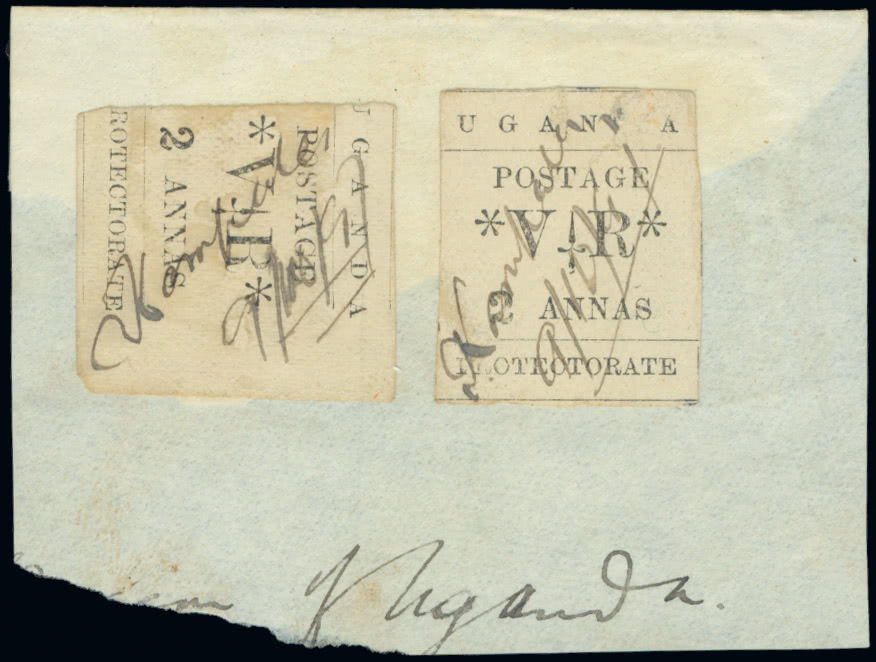 UGANDA
POSTAGE
*V R*
2 ANNAS
ROTECTORATE
Kampala
UGAN A
POSTAGE
*V R*
2 ANNAS
PROTECTORATE
Kampala
of Uganda.